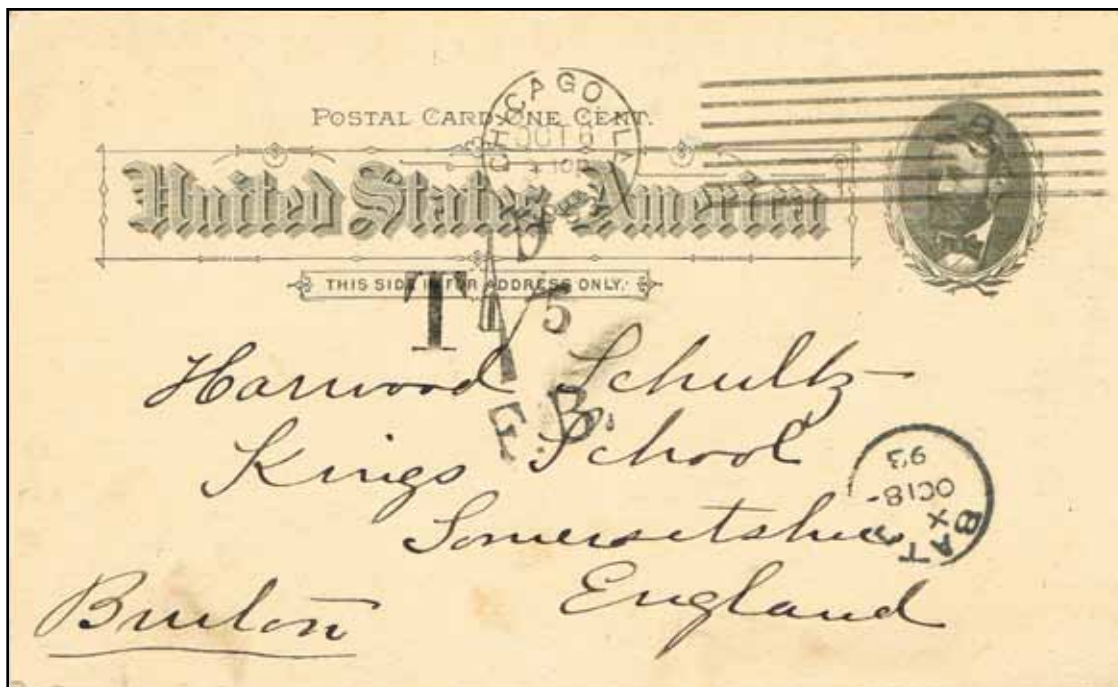 POSTAL CARD-ONE CENT.
CHICAGO ILL
OCT 6
United States America
THIS SIDE IS FOR ADDRESS ONLY.
T 5
Harwood Schultz
G.B.
Kings School
Somersetshire
England
Bruton
BATH
X
OC 18
93